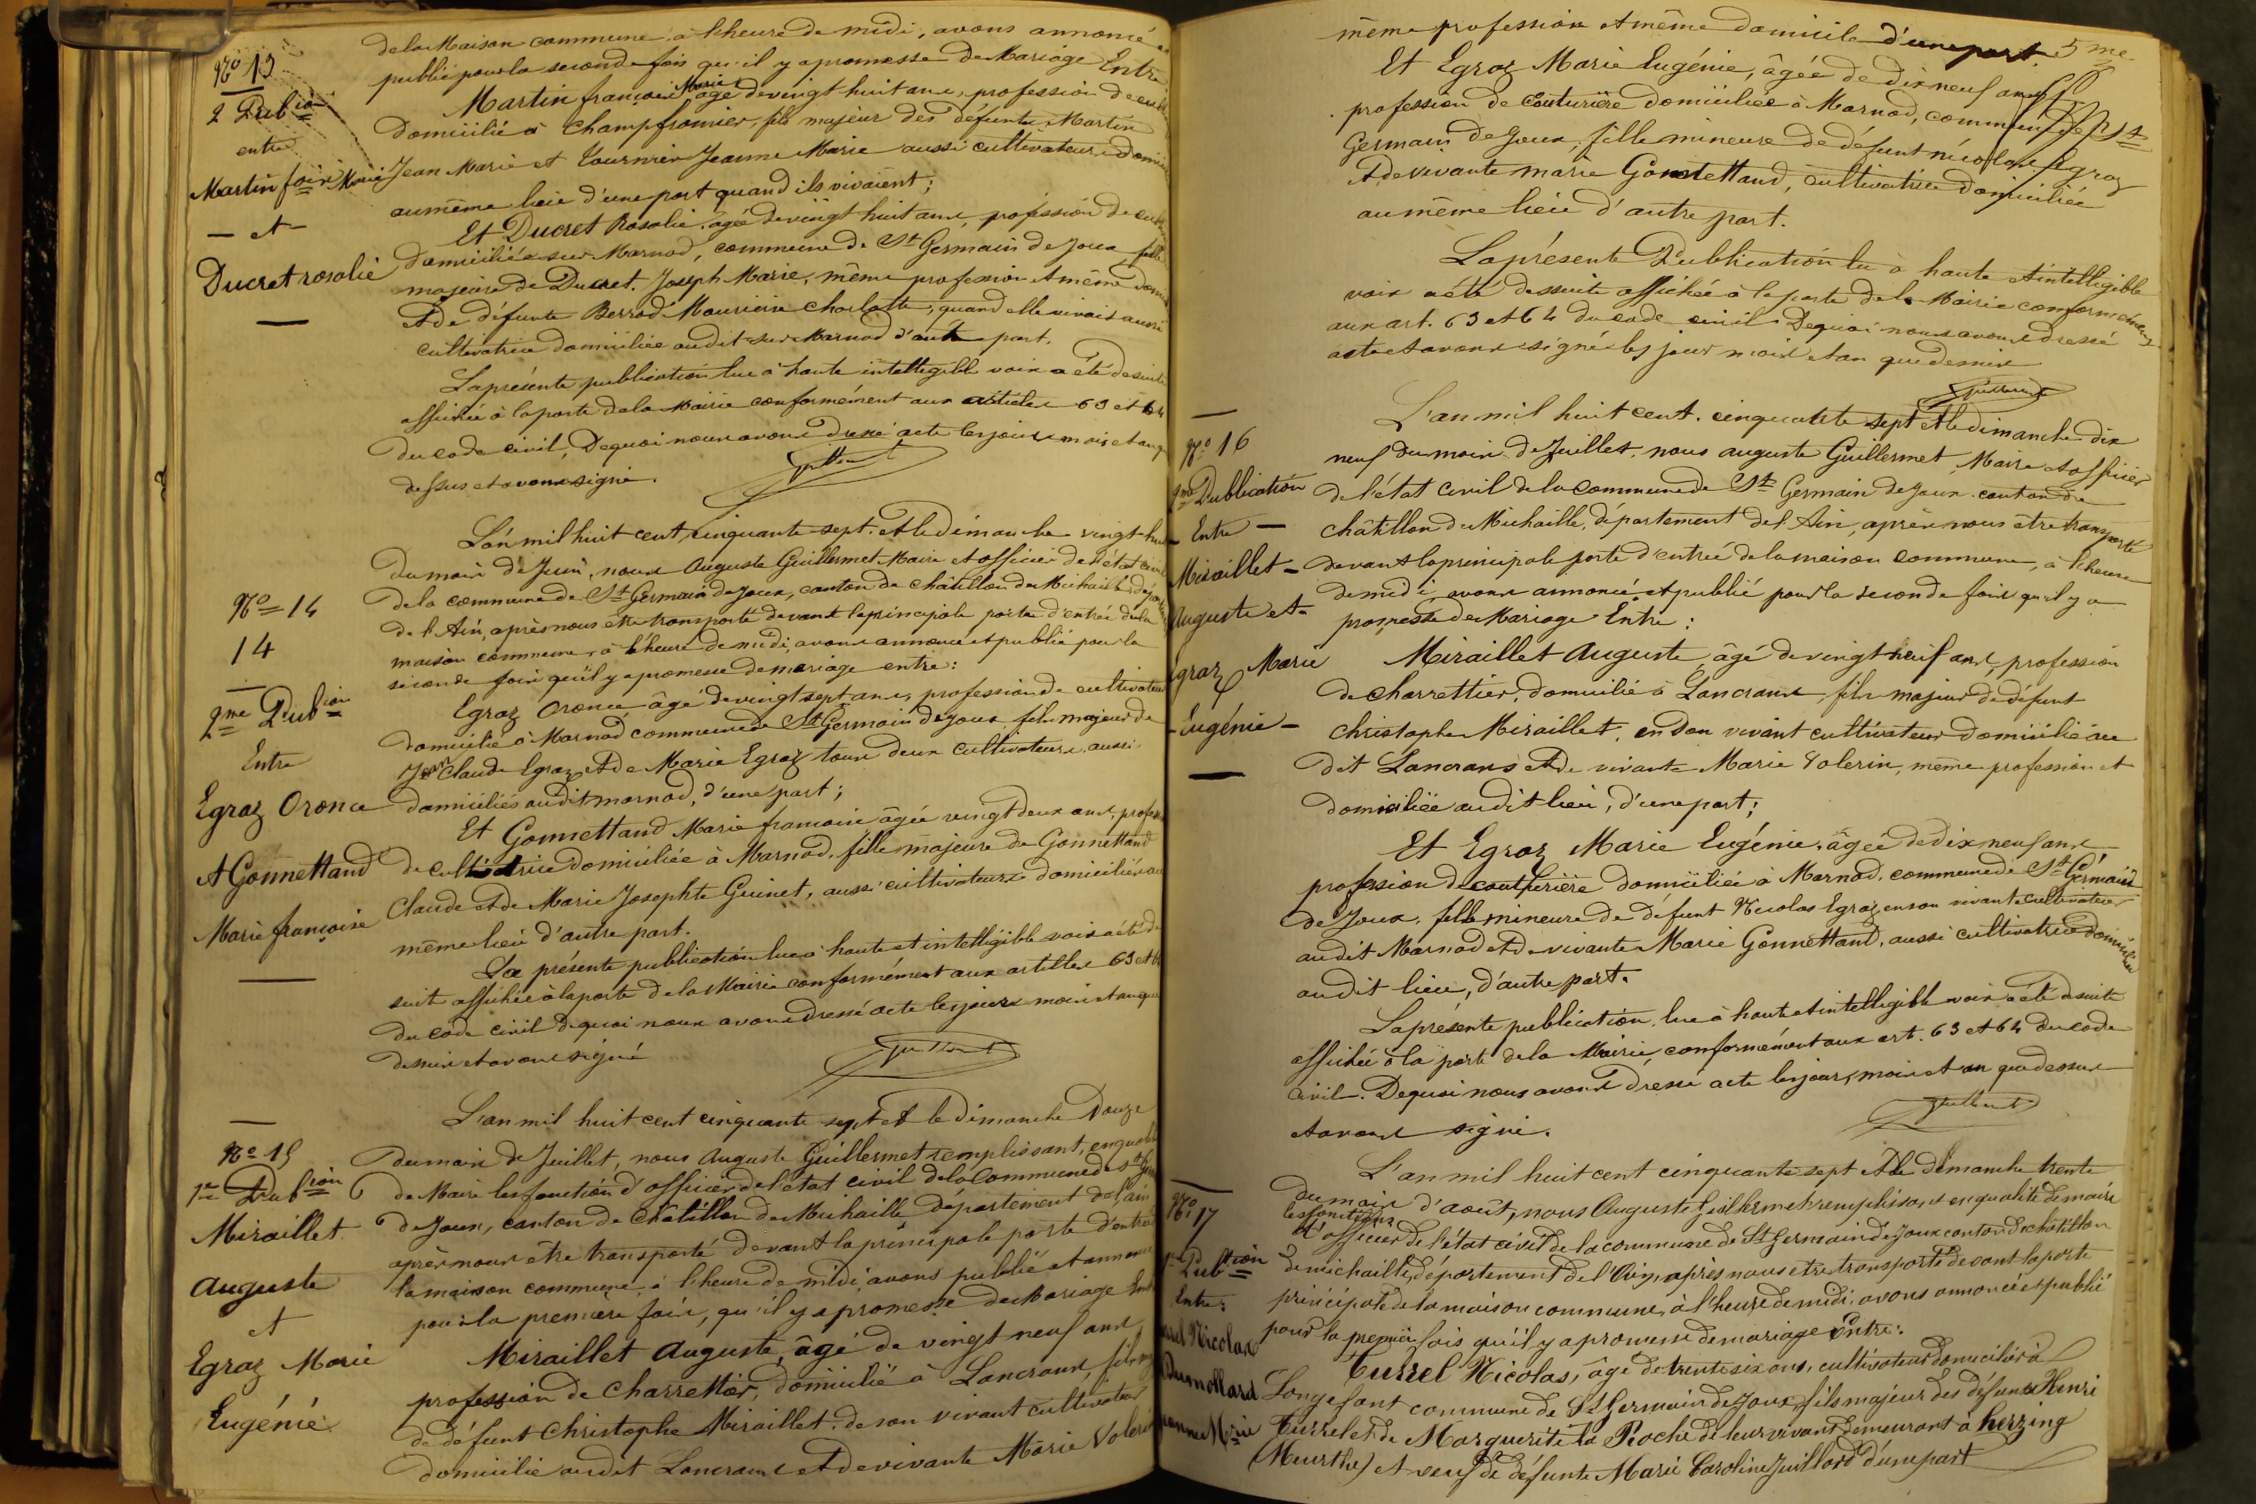 No 13
2 Pub ion
entre
Martin fois Marie
— et —
Ducret rosalie
de la Maison commune à l'heure de midi, avons annoncé et
publié pour la seconde fois qu'il y a promesse de Mariage Entre
Martin françois Marie âgé de vingt huit ans, profession de
domicilié à Champfromier, fils majeur des défunts Martin
Jean Marie et Tournier Jeanne Marie aussi cultivateurs
au même lieu d'une part quand ils vivaient;
Et Ducret Rosalie, âgée de vingt huit ans, profession de
domiciliée sur Marnod, commune de St Germain de Joux, fille
majeure de Ducret Joseph Marie, même profession et même
et de défunte Berrod Mauricie Charlotte, quand elle vivait aussi
cultivatrice domiciliée audit sur Marnod d'autre part.
La présente publication lue à haute intelligible voix a été de suite
affichée à la porte de la Mairie conformément aux articles 63 et 64
du code civil, De quoi nous avons dressé acte les jours mois et an que
dessus et avons signé.
No 14
14
2me Pub ion
Entre
Egraz Oronce
et Gonnettand
Marie françoise
L'an mil huit cent cinquante sept et le dimanche vingt huit
du mois de Juin, nous Auguste Guillermet Maire et officier de l'état civil
de la commune de St Germain de Joux, canton de Châtillon de Michaille
de l'Ain, après nous être transporté devant la principale porte d'entrée de la
maison commune, à l'heure de midi, avons annoncé et publié pour la
seconde fois qu'il y a promesse de mariage entre:
Egraz Oronce âgé de vingt sept ans, profession de cultivateur
domicilié à Marnod commune de St Germain de Joux fils majeur de
Jean Claude Egraz et de Marie Egraz tous deux cultivateurs aussi
domiciliés audit marnod, d'une part;
Et Gonnettand Marie francoise âgée vingt deux ans,
de cultivatrice domiciliée à Marnod, fille majeure de Gonnettand
Claude et de Marie Josephte Guinet, aussi cultivateurs domiciliés au
même lieu d'autre part.
La présente publication lue à haute et intelligible voix a été de
suite affichée à la porte de la Mairie conformément aux articles 63 et 64
du code civil de quoi nous avons dressé acte les jours mois et an que
dessus et avons signé
No 15
1re Pub ion
Miraillet
Auguste
et
Egraz Marie
Eugénie
L'an mil huit cent cinquante sept et le dimanche Douze
du mois de Juillet, nous Auguste Guillermet remplissant, en qualité
de Maire les fonction d'officier de l'état civil de la Commune de St
de Joux, canton de Châtillon de Michaille département de l'ain
après nous être transporté devant la principale porte d'entrée
la maison commune, à l'heure de midi, avons publié et annoncé
pour la première fois, qu'il y a promesse de Mariage
Miraillet Auguste, âgé de vingt neuf ans
profession de Charrettier, domicilié à Lancrans, fils
de défunt Christophe Miraillet, de son vivant cultivateur
domicilié audit Lancrans et de vivante Marie Volerin
5 me
même profession et même domicile d'une part.
Et Egraz Marie Eugénie, âgée de dix neuf ans
profession de couturière domiciliée à Marnod, commune de St
Germain de Joux, fille mineure de défunt nicolas Egraz
et de vivante marie Gonnettand, cultivatrice domiciliée
au même lieu d'autre part.
La présente Publication lu à haute et intelligible
voix a été de suite affichée à la porte de la Mairie conformément
aux art. 63 et 64 du code civil. De quoi nous avons dressé
acte et avons signé les jour mois et an que dessus
No 16
2me Publication
Entre —
Miraillet —
Auguste et
Egraz Marie
Eugénie —
L'an mil huit cent cinquante sept et le dimanche dix
neuf du mois de Juillet, nous auguste Guillermet Maire et officier
de l'état civil de la commune de St Germain de Joux canton de
châtillon de Michaille, département de l'Ain, après nous être transporté
devant la principale porte d'entrée de la maison commune, à l'heure
de midi, avons annoncé et publié pour la seconde fois qu'il y a
promesse de Mariage Entre:
Miraillet Auguste, âgé de vingt neuf ans, profession
de Charrettier, domicilié à Lancrans, fils majeur de défunt
christophe Miraillet, en son vivant cultivateur domicilié au
dit Lancrans et de vivante Marie Volerin, même profession et
domiciliée audit lieu, d'une part;
Et Egraz Marie Eugénie, âgée de dix neuf ans
profession de couturière domiciliée à Marnod, commune de St Germain
de Joux, fille mineure de défunt Nicolas Egraz en son vivant cultivateur
audit Marnod et de vivante Marie Gonnettand, aussi cultivatrice domiciliée
audit lieu, d'autre part.
La présente publication lue à haute et intelligible voix a été de suite
affichée à la porte de la Mairie, conformément aux art. 63 et 64 du code
civil. De quoi nous avons dressé acte les jours, mois et an que dessus
et avons signé.
No 17
1re Pub tion
Entre:
Nicolas
Dumollard
L'an mil huit cent cinquante sept et le dimanche trente
du mois d'août, nous Auguste Guillermet remplissant en qualité de maire
les fonctions
d'officier de l'état civil de la commune de St Germain de Joux canton de châtillon
de michaille, département de l'Ain, après nous être transporté devant la porte
principale de la maison commune, à l'heure de midi, avons annoncé et publié
pour la première fois qu'il y a promesse de mariage Entre:
Turrel Nicolas, âgé de trente six ans, cultivateur domicilié à
Longefant commune de St Germain de Joux, fils majeur des défunts Henri
Turrel et de Marguerite la Roche de leur vivant demeurant à herzing
(Meurthe) et veuf de défunte Marie Caroline Juillard d'une part